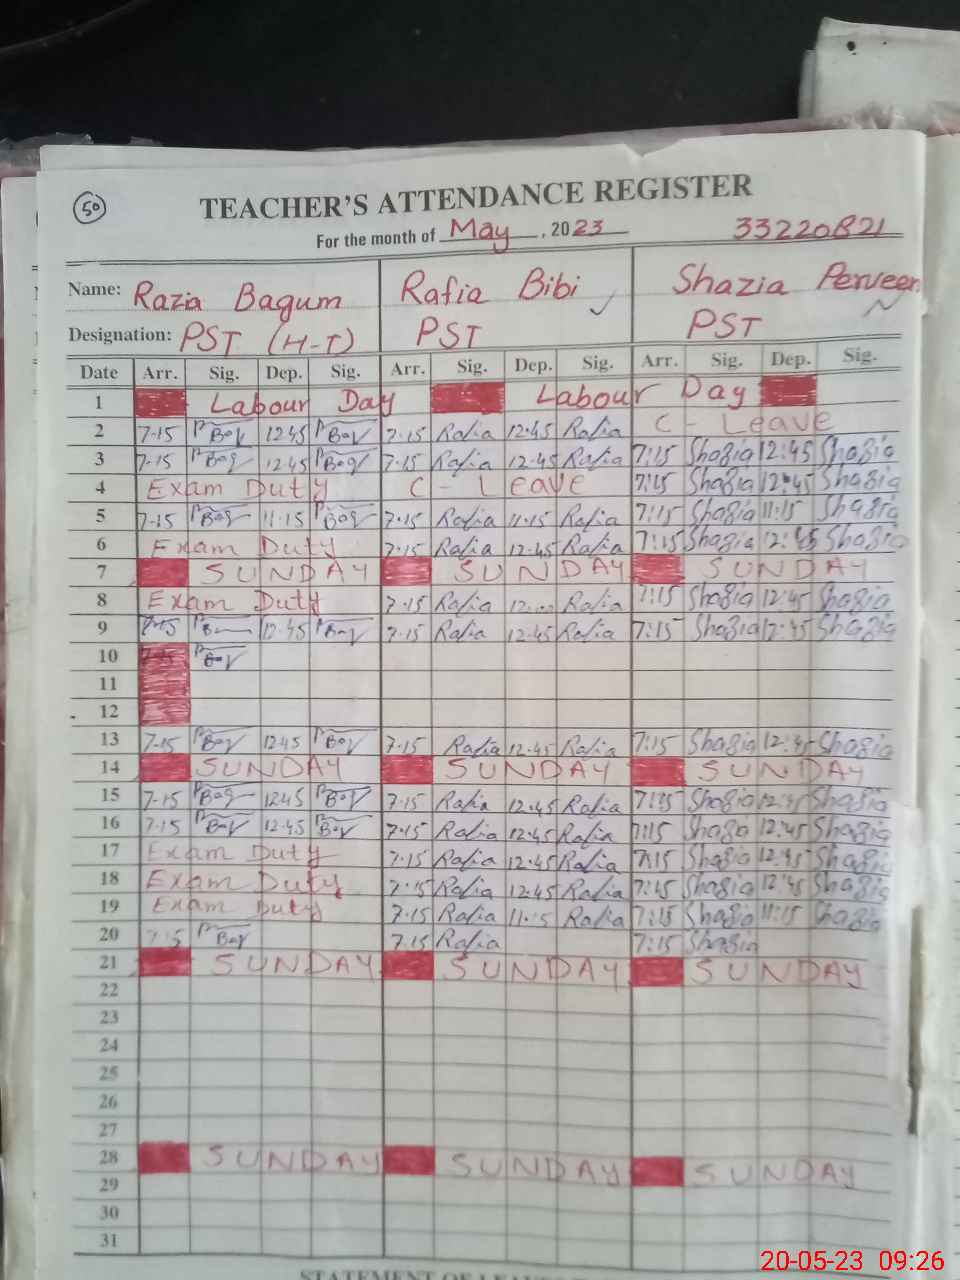 50
TEACHER'S ATTENDANCE REGISTER
For the month of May, 2023 33220821
Name: Razia Bagum Rafia Bibi Shazia Perveen
Designation: PST (H-T) PST PST
Date Arr. Sig. Dep. Sig. Arr. Sig. Dep. Sig. Arr. Sig. Dep. Sig.
1 Labour Day Labour Day
2 7-15 Bag 1245 Bag 7.15 Rafia 12.45 Rafia C - Leave
3 7-15 Bag 1245 Bag 7.15 Rafia 12.45 Rafia 7:15 Shazia 12:45 Shazia
4 Exam Duty C - Leave 7:15 Shazia 12:45 Shazia
5 7-15 Bag 11-15 Bag 7.15 Rafia 11.15 Rafia 7:15 Shazia 11:15 Shazia
6 Exam Duty 7.15 Rafia 12.45 Rafia 7:15 Shazia 12:45 Shazia
7 SUNDAY SUNDAY SUNDAY
8 Exam Duty 7.15 Rafia Rafia 7:15 Shazia 12:45 Shazia
9 7-15 12.45 Bag 7.15 Rafia 12.45 Rafia 7:15 Shazia 12:45 Shazia
10 Bag
11
12
13 7-15 Bag 1245 Bag 7.15 Rafia 12.45 Rafia 7:15 Shazia 12:45 Shazia
14 SUNDAY SUNDAY SUNDAY
15 7-15 Bag 1245 Bag 7.15 Rafia 12.45 Rafia 7:15 Shazia 12:45 Shazia
16 7-15 Bag 12.45 Bag 7.15 Rafia 12.45 Rafia 7:15 Shazia 12:45 Shazia
17 Exam Duty 7.15 Rafia 12.45 Rafia 7:15 Shazia 12:45 Shazia
18 Exam Duty 7.15 Rafia 12.45 Rafia 7:15 Shazia 12:45 Shazia
19 Exam Duty 7.15 Rafia 11.15 Rafia 7:15 Shazia 11:15 Shazia
20 7-15 Bag 7.15 Rafia 7:15 Shazia
21 SUNDAY SUNDAY SUNDAY
22
23
24
25
26
27
28 SUNDAY SUNDAY SUNDAY
29
30
31
20-05-23 09:26